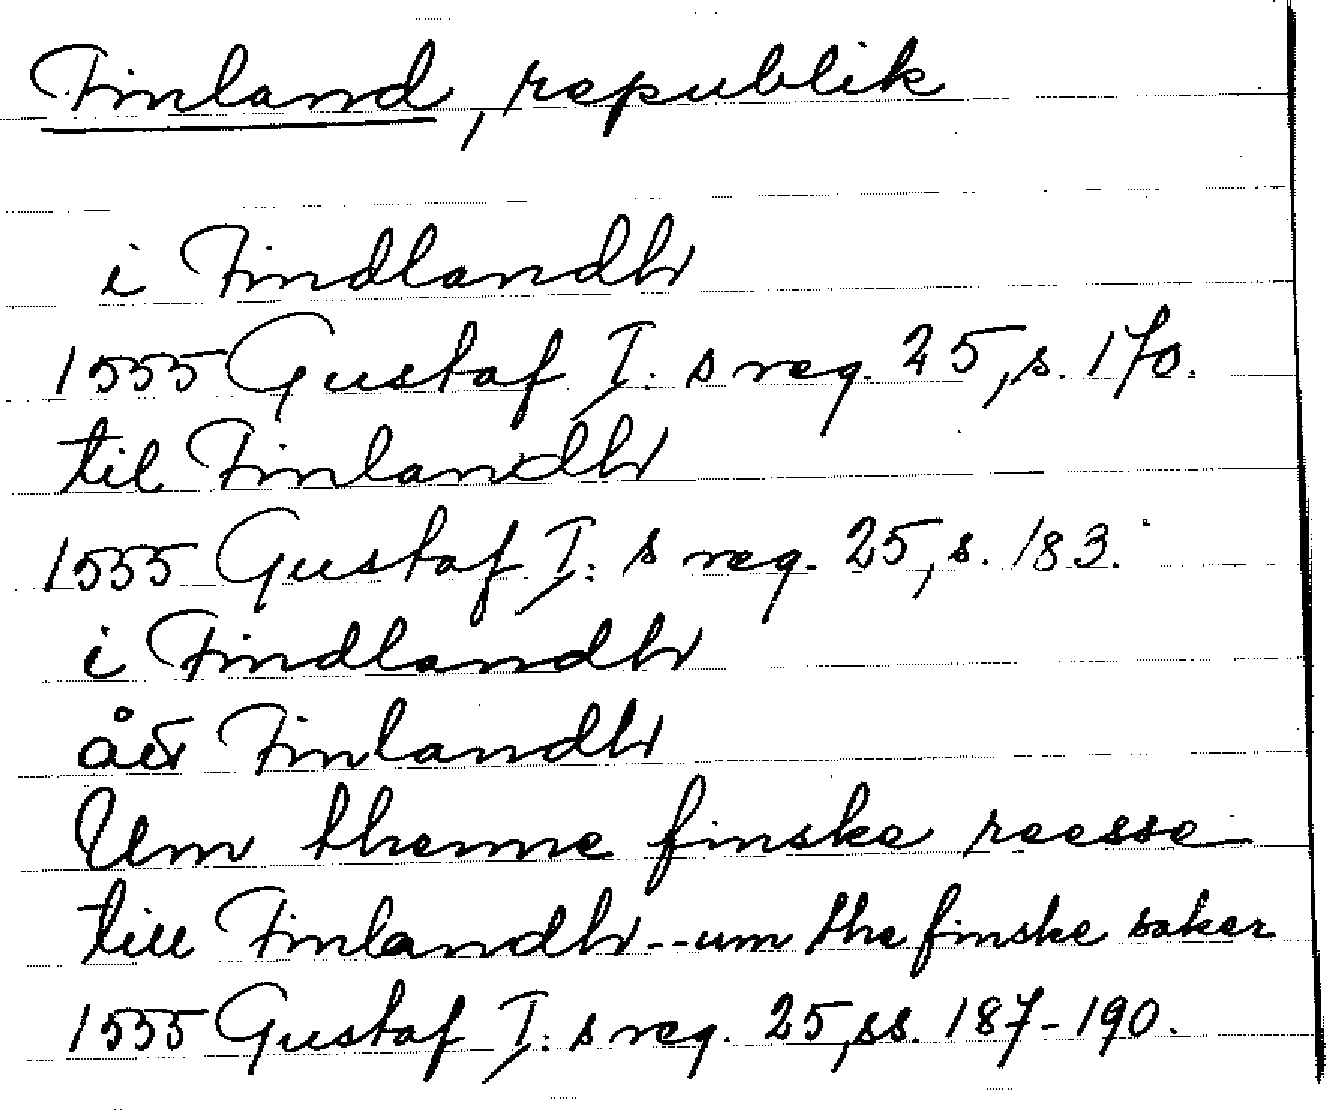 Finland, republik
i Findlandh
1555 Gustaf I: s reg. 25, s. 170.
til Finlandh
1555 Gustaf I: s reg. 25, s. 183.
i Findlandh
åt Finlandh
Um thenne finske reesse
till Finlandh -- um the finske saker
1555 Gustaf I: s reg. 25, ss. 187-190.